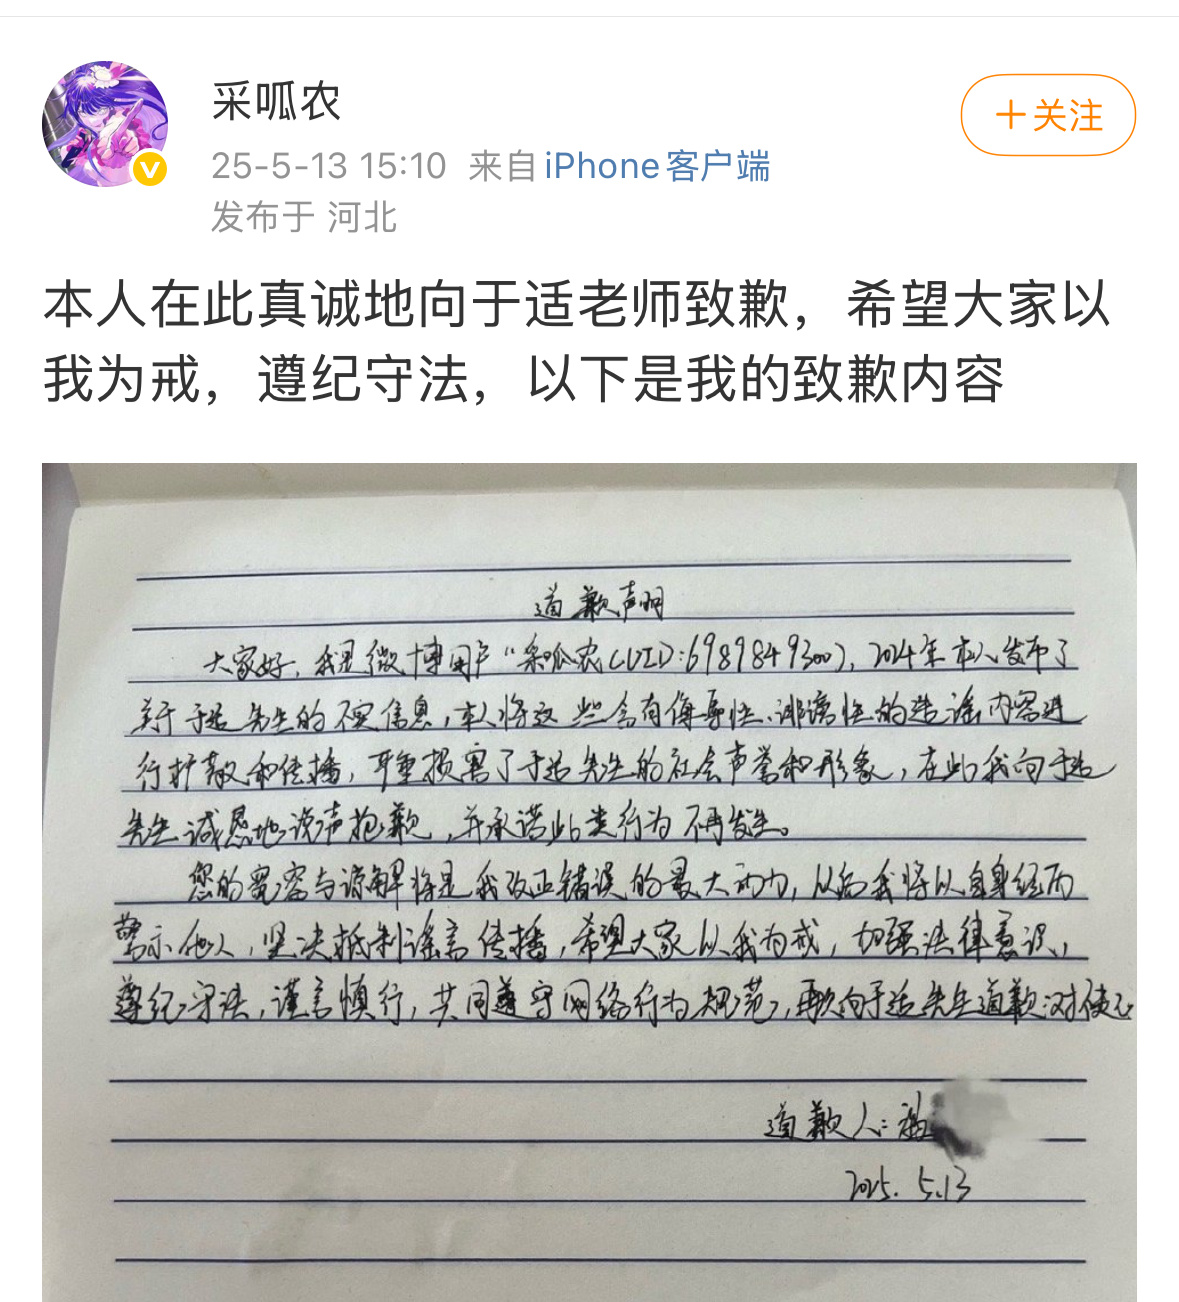 采呱农
＋关注
25-5-13 15:10 来自 iPhone客户端
发布于 河北
本人在此真诚地向于适老师致歉，希望大家以
我为戒，遵纪守法，以下是我的致歉内容
道歉声明
大家好，我是微博用户“采呱农(UID:6989849300)，2024年本人发布了
关于于适先生的不实信息，本人将这些含有侮辱性、诽谤性的造谣内容进
行扩散和传播，严重损害了于适先生的社会声誉和形象，在此我向于适
先生诚恳地说声抱歉，并承诺此类行为不再发生。
您的宽容与谅解将是我改正错误的最大动力，从后我将以自身经历
警示他人，坚决抵制谣言传播，希望大家以我为戒，加强法律意识，
遵纪守法，谨言慎行，共同遵守网络行为规范，再次向于适先生道歉对使心
道歉人：
2025. 5.13